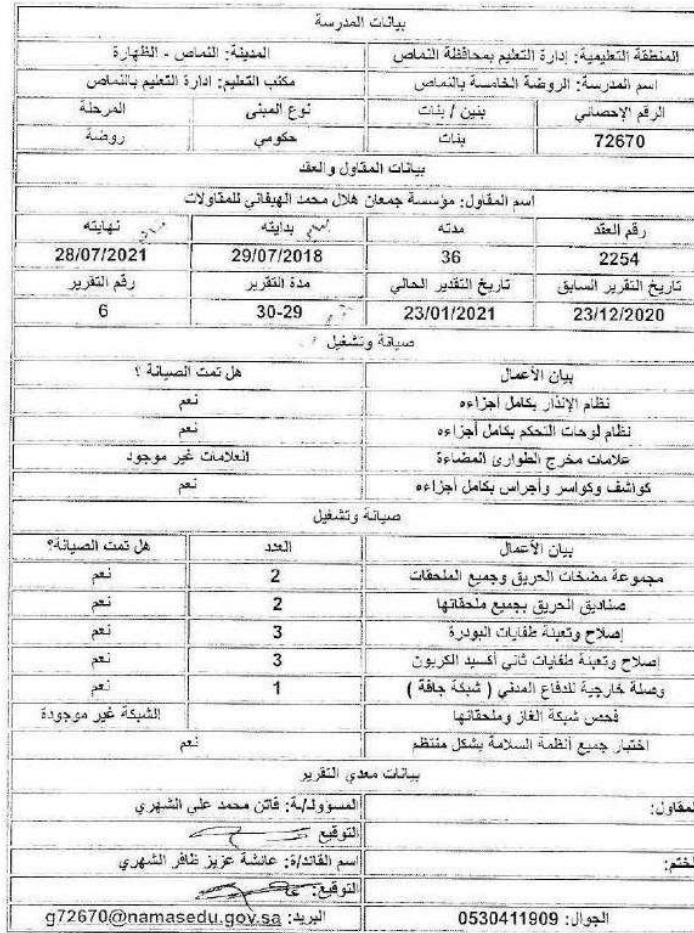 بيانات المدرسة
المنطقة التعليمية: إدارة التعليم بمحافظة النماص
المدينة: النماص - الظهارة
اسم المدرسة: الروضة الخامسة بالنماص
مكتب التعليم: ادارة التعليم بالنماص
الرقم الإحصائي بنين / بنات نوع المبنى المرحلة
72670 بنات حكومي روضة
بيانات المقاول والعقد
اسم المقاول: مؤسسة جمعان هلال محمد الهيفاني للمقاولات
رقم العقد مدته بدايته نهايته
2254 36 29/07/2018 28/07/2021
تاريخ التقرير السابق تاريخ التقدير الحالي مدة التقرير رقم التقرير
23/12/2020 23/01/2021 30-29 6
صيانة وتشغيل
بيان الأعمال هل تمت الصيانة ؟
نظام الإنذار بكامل أجزاءه نعم
نظام لوحات التحكم بكامل أجزاءه نعم
علامات مخرج الطوارئ المضاءة العلامات غير موجود
كواشف وكواسر وأجراس بكامل أجزاءه نعم
صيانة وتشغيل
بيان الأعمال العدد هل تمت الصيانة؟
مجموعة مضخات الحريق وجميع الملحقات 2 نعم
صناديق الحريق بجميع ملحقاتها 2 نعم
إصلاح وتعبئة طفايات البودرة 3 نعم
إصلاح وتعبئة طفايات ثاني أكسيد الكربون 3 نعم
وصلة خارجية للدفاع المدني ( شبكة جافة ) 1 نعم
فحص شبكة الغاز وملحقاتها الشبكة غير موجودة
اختبار جميع أنظمة السلامة بشكل منتظم نعم
بيانات معدي التقرير
المقاول: المسؤول/ـة: فاتن محمد على الشهري
التوقيع
الختم: اسم القائد/ة: عائشة عزيز ظافر الشهري
التوقيع:
الجوال: 0530411909 البريد: g72670@namasedu.gov.sa